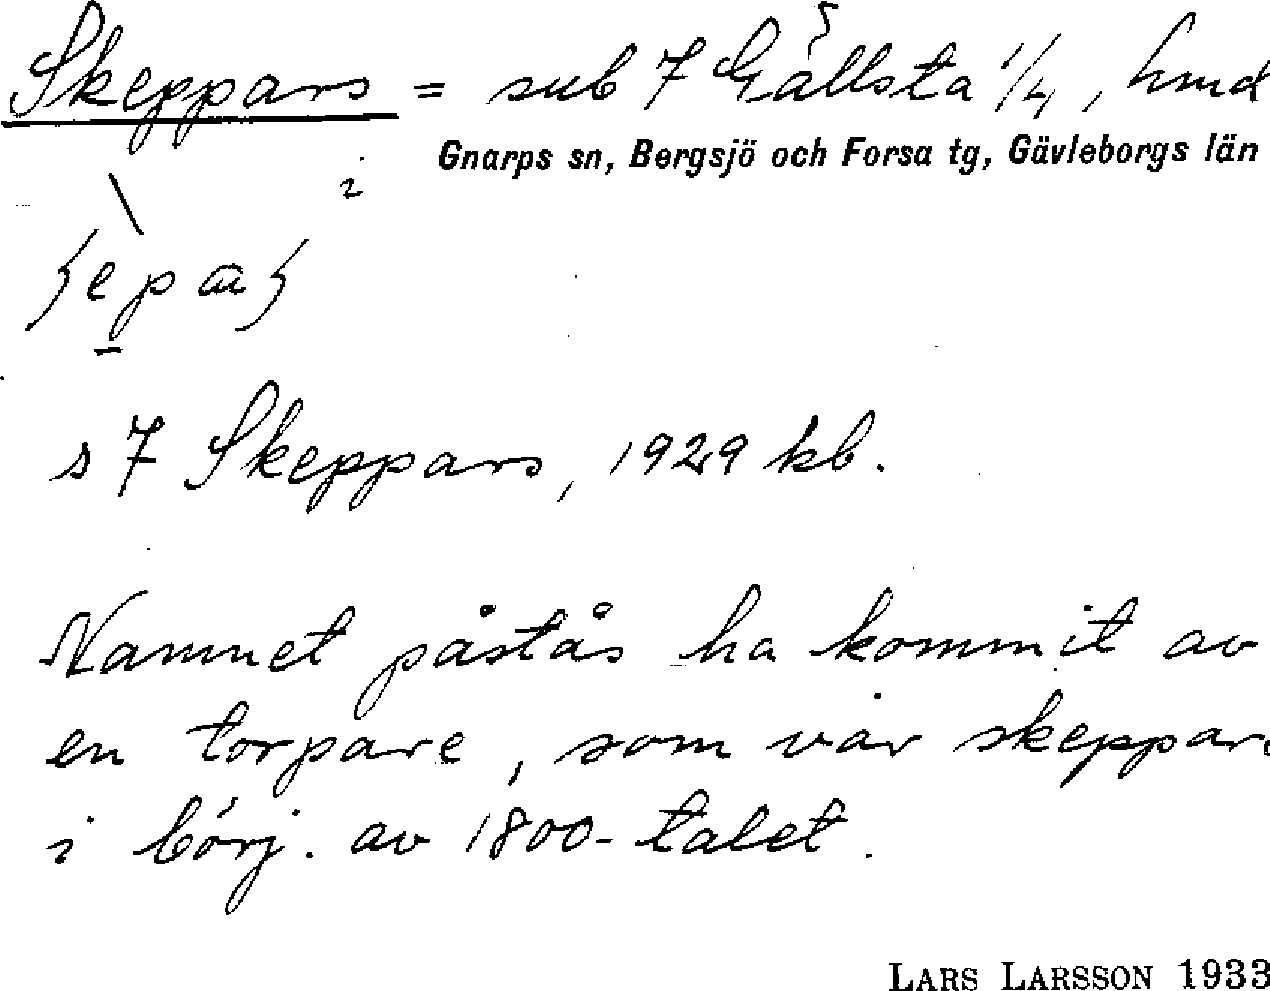 Skeppars = sub 7 Gällsta 1/4, hmd
Gnarps sn, Bergsjö och Forsa tg, Gävleborgs län
s 7 Skeppars, 1929 kb.
Namnet påstås ha kommit av
en torpare, som var skeppare
i börj. av 1800-talet.
LARS LARSSON 1933